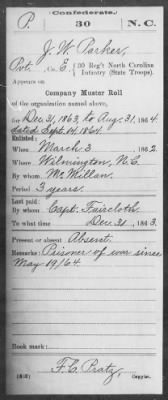 Confederate.
P. 30 N.C.
J. W. Parker,
Pvt., Co. E, 30 Reg't North Carolina
Infantry (State Troops).
Appears on
Company Muster Roll
of the organization named above,
for Dec. 31, 1863, to Aug. 31, 1864
dated Sept. 14, 1864.
Enlisted:
When March 3, 1862.
Where Wilmington, N.C.
By whom McMillan.
Period 3 years.
Last paid:
By whom Capt. Faircloth.
To what time Dec. 31, 1863.
Present or absent Absent.
Remarks: Prisoner of war since
May 19/64.
Book mark:
F. C. Pratz,
Copyist.